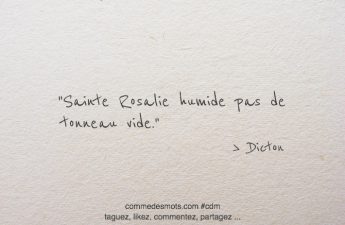 "Sainte Rosalie humide pas de
tonneau vide."
> Dicton
commedesmots.com #cdm
taguez, likez, commentez, partagez ...